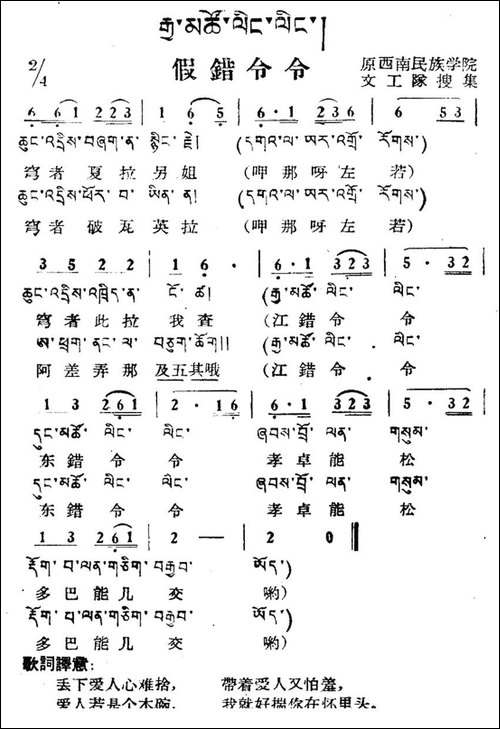 རྒྱ་མཚོ་ལིང་ལིང་།
2/4 假錯令令 原西南民族学院
文工隊搜集
6 6 1 2 2 3 | 1 6 5 | 6 · 1 2 3 6 | 6 5 3 |
ཆུང་འདྲིས་བཞག་ན་ སྙིང་རྗེ། (དགའ་ལ་ ཨར་འགྲོ་ རོགས་)
穹者 夏拉 另姐 (呷那呀左 若)
ཆུང་འདྲིས་ཕོར་བ་ ཡིན་ན། (དགའ་ལ་ ཨར་འགྲོ་ རོགས་)
穹者 破瓦 英拉 (呷那呀左 若)
3 5 2 2 | 1 6 · | 6 · 1 3 2 3 | 5 · 3 2 |
ཆུང་འདྲིས་འཁྲིད་ན་ ངོ་ཚ། (རྒྱ་མཚོ་ལིང་ ལིང་
穹者此拉 我查 (江錯令 令
ཨ་ཕྲག་ནང་ལ་ བཅུག་ཆོག། (རྒྱ་མཚོ་ལིང་ ལིང་
阿差弄那 及五其哦 (江錯令 令
1 3 2 6 1 | 2 · 1 6 | 6 · 1 3 2 3 | 5 · 3 2 |
དུང་མཚོ་ ལིང་ ལིང་ ཞབས་བྲོ་ ལན་ གསུམ་
东錯 令 令 孝卓能 松
དུང་མཚོ་ ལིང་ ལིང་ ཞབས་བྲོ་ ལན་ གསུམ་
东錯 令 令 孝卓能 松
1 3 2 6 1 | 2 — | 2 0 ‖
རྡོག་པ་ལན་གཅིག་བརྒྱབ་ ཡོད་)
多巴能几 交 喲)
རྡོག་པ་ལན་གཅིག་བརྒྱབ་ ཡོད་)
多巴能几 交 喲)
歌詞譯意:
丢下爱人心难捨, 帶着爱人又怕羞,
爱人若是个木碗, 我就好揣你在怀里头。